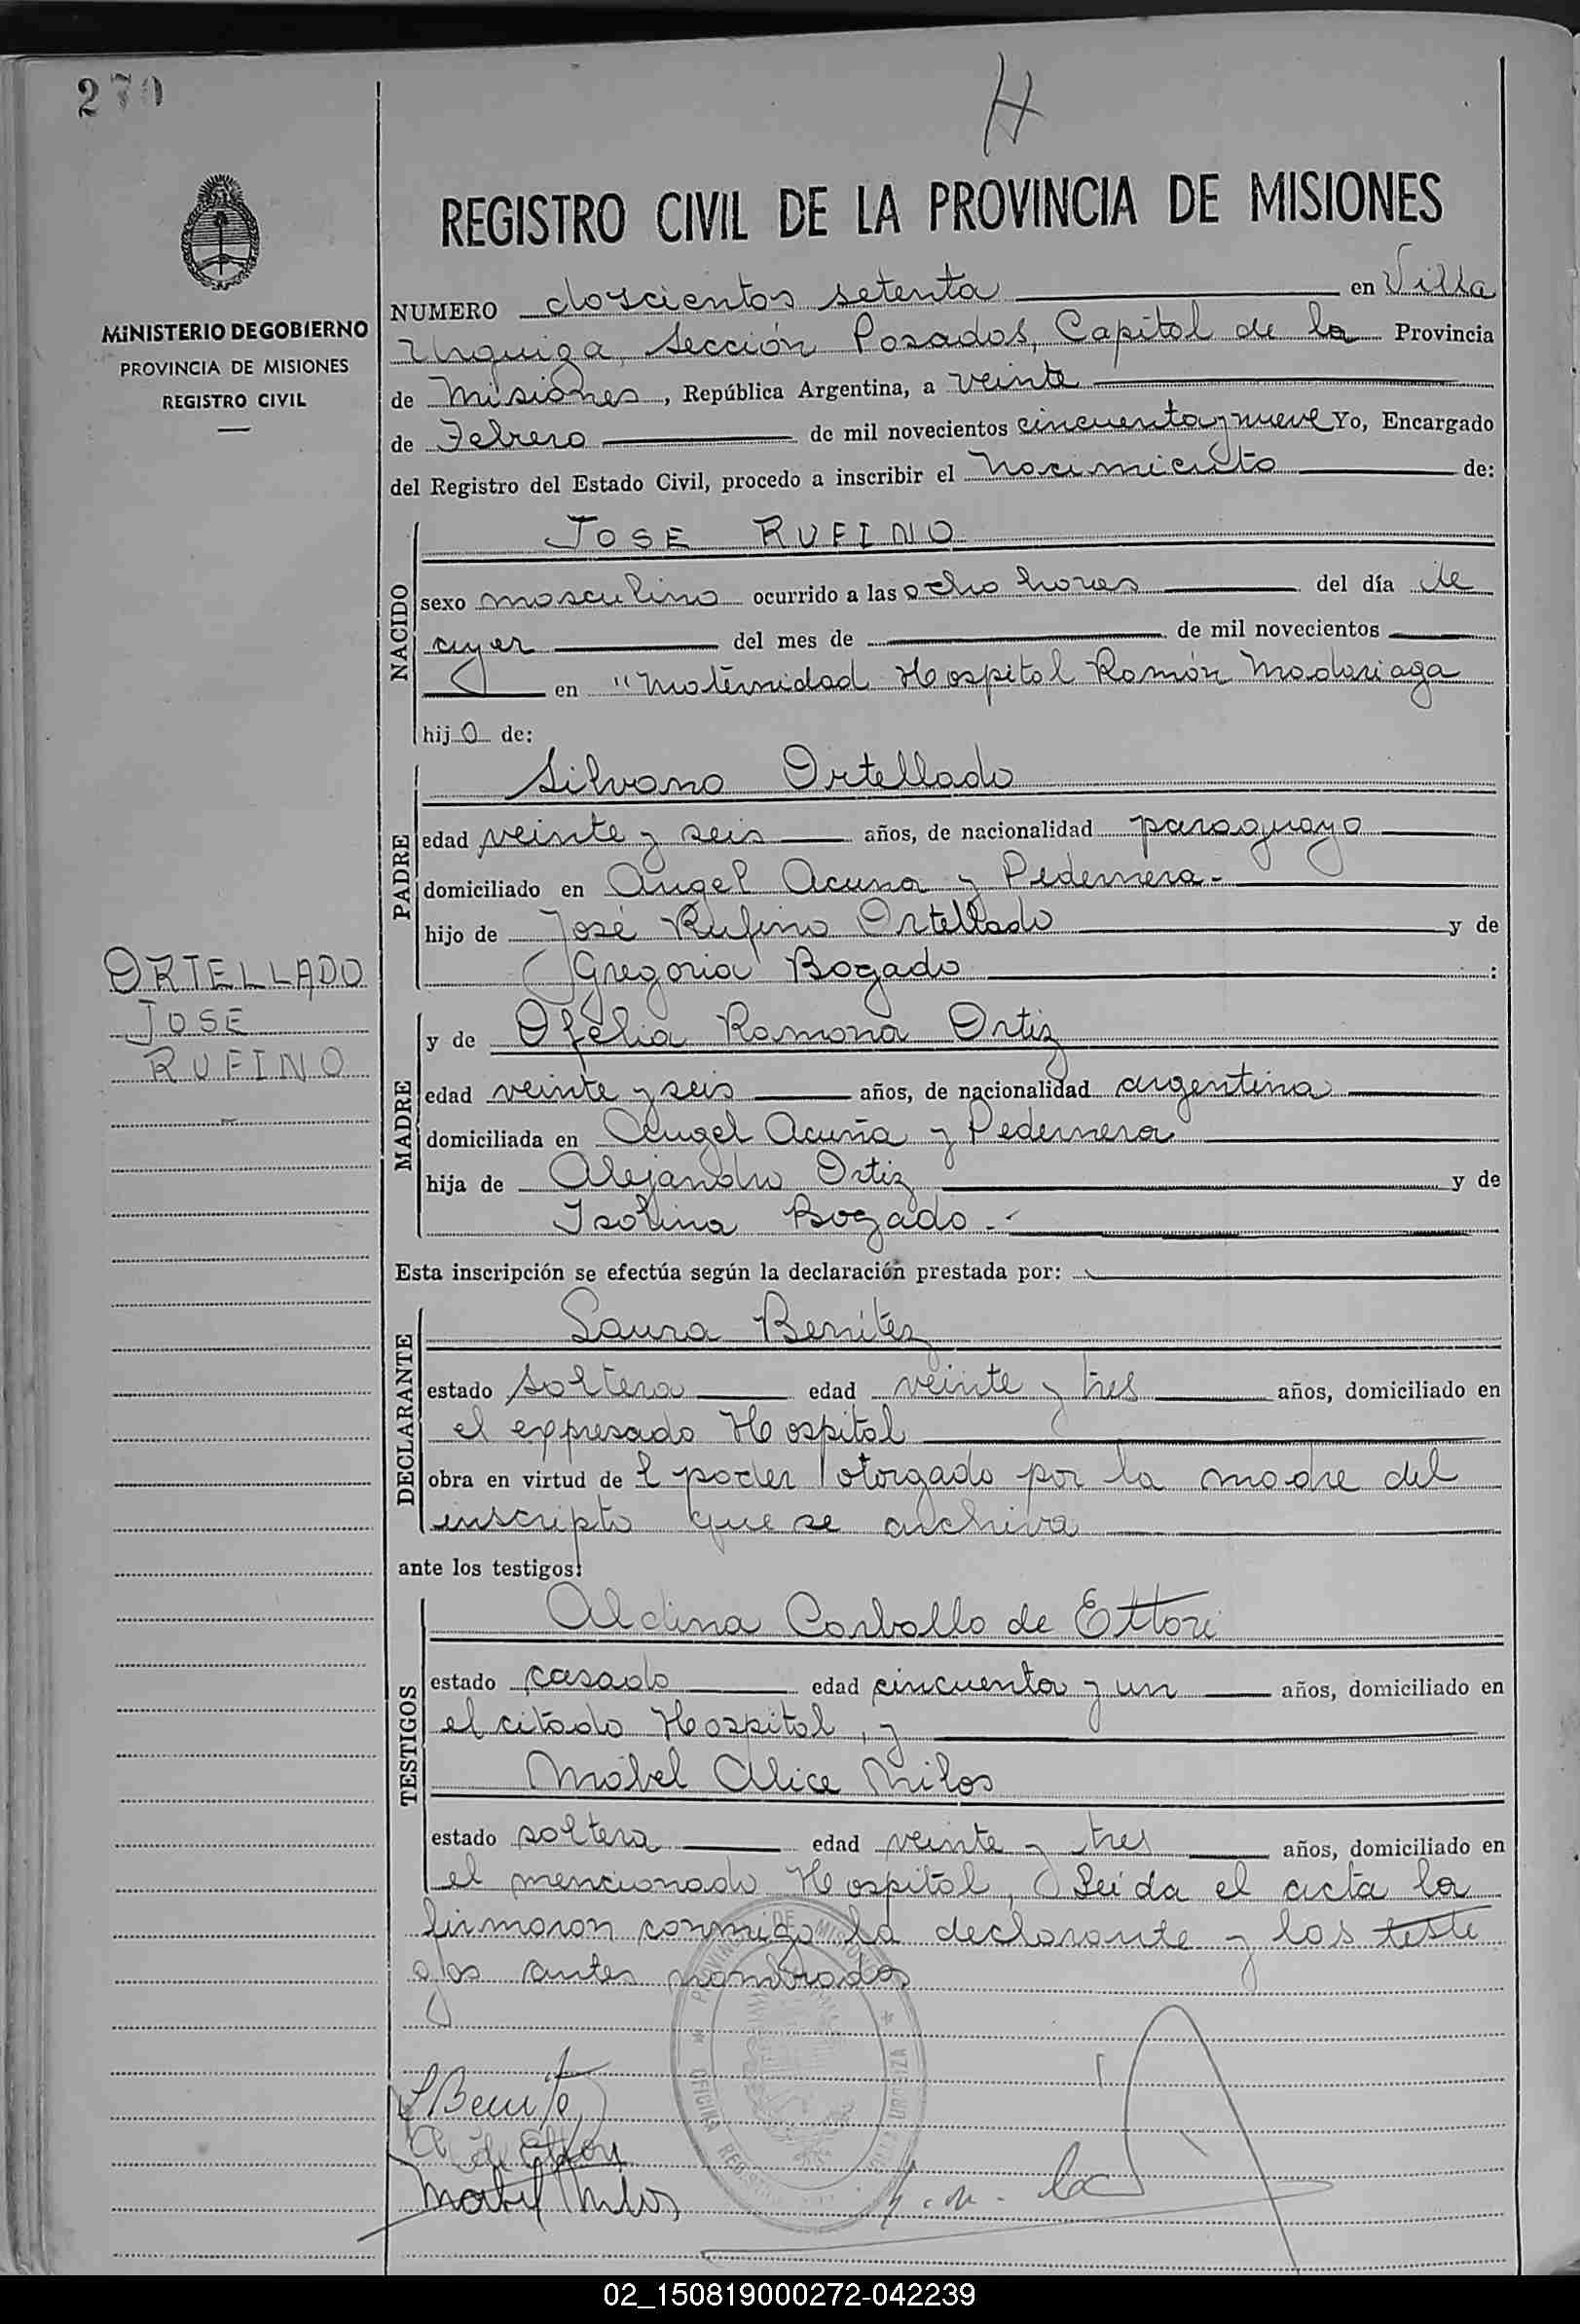 270
H
MINISTERIO DE GOBIERNO
PROVINCIA DE MISIONES
REGISTRO CIVIL
REGISTRO CIVIL DE LA PROVINCIA DE MISIONES
NUMERO doscientos setenta en Villa
Urquiza, Sección Posadas, Capital de la Provincia
de Misiones, República Argentina, a veinte
de Febrero de mil novecientos cincuenta y nueve Yo, Encargado
del Registro del Estado Civil, procedo a inscribir el Nacimiento de:
NACIDO
JOSE RUFINO
sexo masculino ocurrido a las ocho horas del día de
ayer del mes de de mil novecientos
en "Maternidad Hospital Ramón Madariaga
hijo de:
PADRE
Silvano Ortellado
edad veinte y seis años, de nacionalidad paraguayo
domiciliado en Angel Acuna y Pedernera-
hijo de José Rufino Ortellado y de
Gregoria Bogado :
ORTELLADO
JOSE
RUFINO
MADRE
y de Ofelia Ramona Ortiz
edad veinte y seis años, de nacionalidad argentina
domiciliada en Angel Acuña y Pedernera
hija de Alejandro Ortiz y de
Isolina Bogado.-
Esta inscripción se efectúa según la declaración prestada por:
DECLARANTE
Laura Benítez
estado soltera edad veinte y tres años, domiciliado en
el expresado Hospital
obra en virtud de l poder otorgado por la madre del
inscripto que se archiva
ante los testigos:
TESTIGOS
Aldina Carballo de Ettori
estado casada edad cincuenta y un años, domiciliado en
el citado Hospital, y
Mabel Alice Milos
estado soltera edad veinte y tres años, domiciliado en
el mencionado Hospital, Leída el acta la
firmaron conmigo la declarante y los testi
gos antes nombrados
PROVINCIA DE MISIONES
OFICINA REG. VILLA URQUIZA
LBenítez
A de Ettori
Mabel Milos
02_150819000272-042239